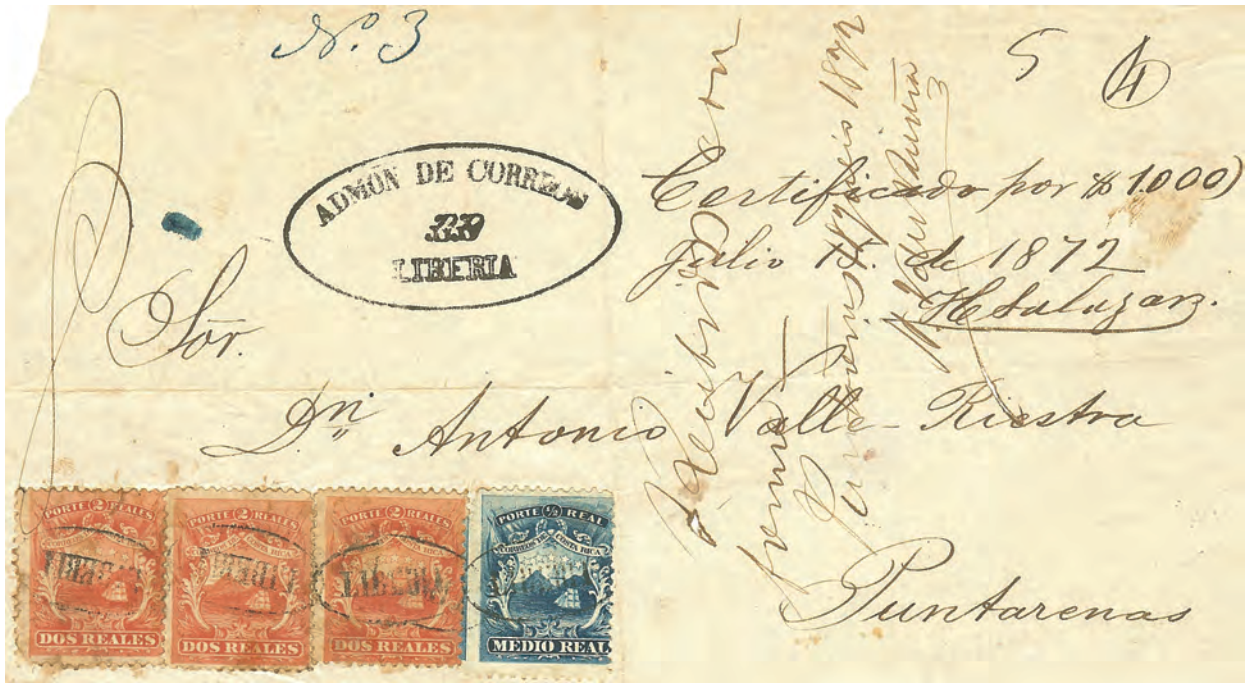 No. 3
5 4
ADMÓN DE CORREOS
EN
LIBERIA
Certificado por $ 1000)
Julio 14. de 1872
H Salazar.
Sor.
Dn. Antonio Valle-Riestra
Puntarenas
Recibido con
1872
PORTE 2 REALES
CORREOS DE COSTA RICA
LIBERIA
DOS REALES
PORTE 2 REALES
CORREOS DE COSTA RICA
LIBERIA
DOS REALES
PORTE 2 REALES
CORREOS DE COSTA RICA
LIBERIA
DOS REALES
PORTE ½ REAL
CORREOS DE COSTA RICA
MEDIO REAL